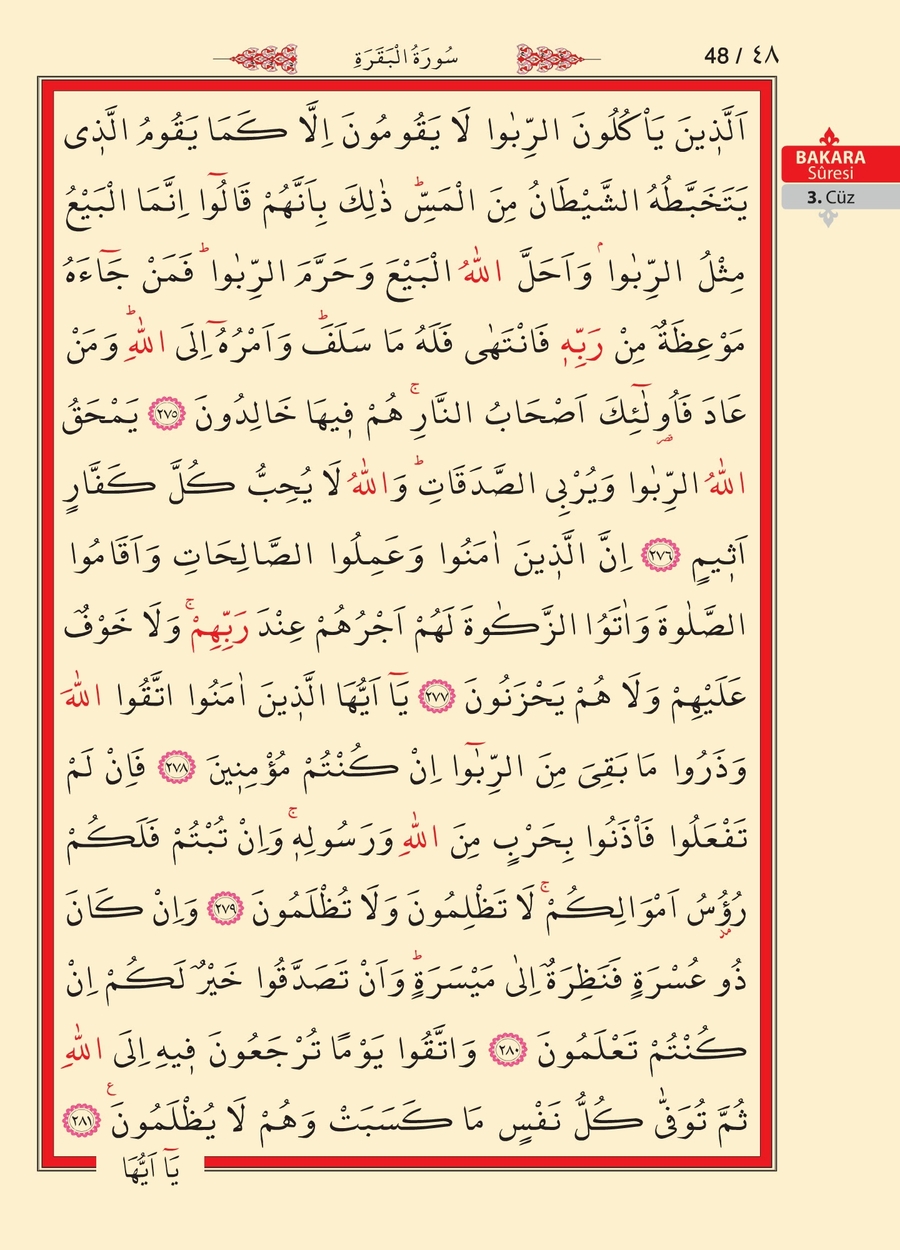 سُورَةُ الْبَقَرَةِ
48 / ٤٨
BAKARA
Sûresi
3. Cüz
اَلَّذ۪ينَ يَأْكُلُونَ الرِّبٰوا لَا يَقُومُونَ اِلَّا كَمَا يَقُومُ الَّذ۪ى
يَتَخَبَّطُهُ الشَّيْطَانُ مِنَ الْمَسِّۜ ذٰلِكَ بِاَنَّهُمْ قَالُٓوا اِنَّمَا الْبَيْعُ
مِثْلُ الرِّبٰواۢ وَاَحَلَّ اللّٰهُ الْبَيْعَ وَحَرَّمَ الرِّبٰواۜ فَمَنْ جَٓاءَهُ
مَوْعِظَةٌ مِنْ رَبِّه۪ فَانْتَهٰى فَلَهُ مَا سَلَفَۜ وَاَمْرُهُٓ اِلَى اللّٰهِۜ وَمَنْ
عَادَ فَاُو۬لٰٓئِكَ اَصْحَابُ النَّارِۚ هُمْ ف۪يهَا خَالِدُونَ ﴿٢٧٥﴾ يَمْحَقُ
اللّٰهُ الرِّبٰوا وَيُرْبِى الصَّدَقَاتِۜ وَاللّٰهُ لَا يُحِبُّ كُلَّ كَفَّارٍ
اَث۪يمٍ ﴿٢٧٦﴾ اِنَّ الَّذ۪ينَ اٰمَنُوا وَعَمِلُوا الصَّالِحَاتِ وَاَقَامُوا
الصَّلٰوةَ وَاٰتَوُا الزَّكٰوةَ لَهُمْ اَجْرُهُمْ عِنْدَ رَبِّهِمْۚ وَلَا خَوْفٌ
عَلَيْهِمْ وَلَا هُمْ يَحْزَنُونَ ﴿٢٧٧﴾ يَٓا اَيُّهَا الَّذ۪ينَ اٰمَنُوا اتَّقُوا اللّٰهَ
وَذَرُوا مَا بَقِىَ مِنَ الرِّبٰٓوا اِنْ كُنْتُمْ مُؤْمِن۪ينَ ﴿٢٧٨﴾ فَاِنْ لَمْ
تَفْعَلُوا فَأْذَنُوا بِحَرْبٍ مِنَ اللّٰهِ وَرَسُولِه۪ۚ وَاِنْ تُبْتُمْ فَلَكُمْ
رُؤُ۫سُ اَمْوَالِكُمْۚ لَا تَظْلِمُونَ وَلَا تُظْلَمُونَ ﴿٢٧٩﴾ وَاِنْ كَانَ
ذُو عُسْرَةٍ فَنَظِرَةٌ اِلٰى مَيْسَرَةٍۜ وَاَنْ تَصَدَّقُوا خَيْرٌ لَكُمْ اِنْ
كُنْتُمْ تَعْلَمُونَ ﴿٢٨٠﴾ وَاتَّقُوا يَوْمًا تُرْجَعُونَ ف۪يهِ اِلَى اللّٰهِ
ثُمَّ تُوَفّٰى كُلُّ نَفْسٍ مَا كَسَبَتْ وَهُمْ لَا يُظْلَمُونَ۟ ﴿٢٨١﴾
يَٓا اَيُّهَا